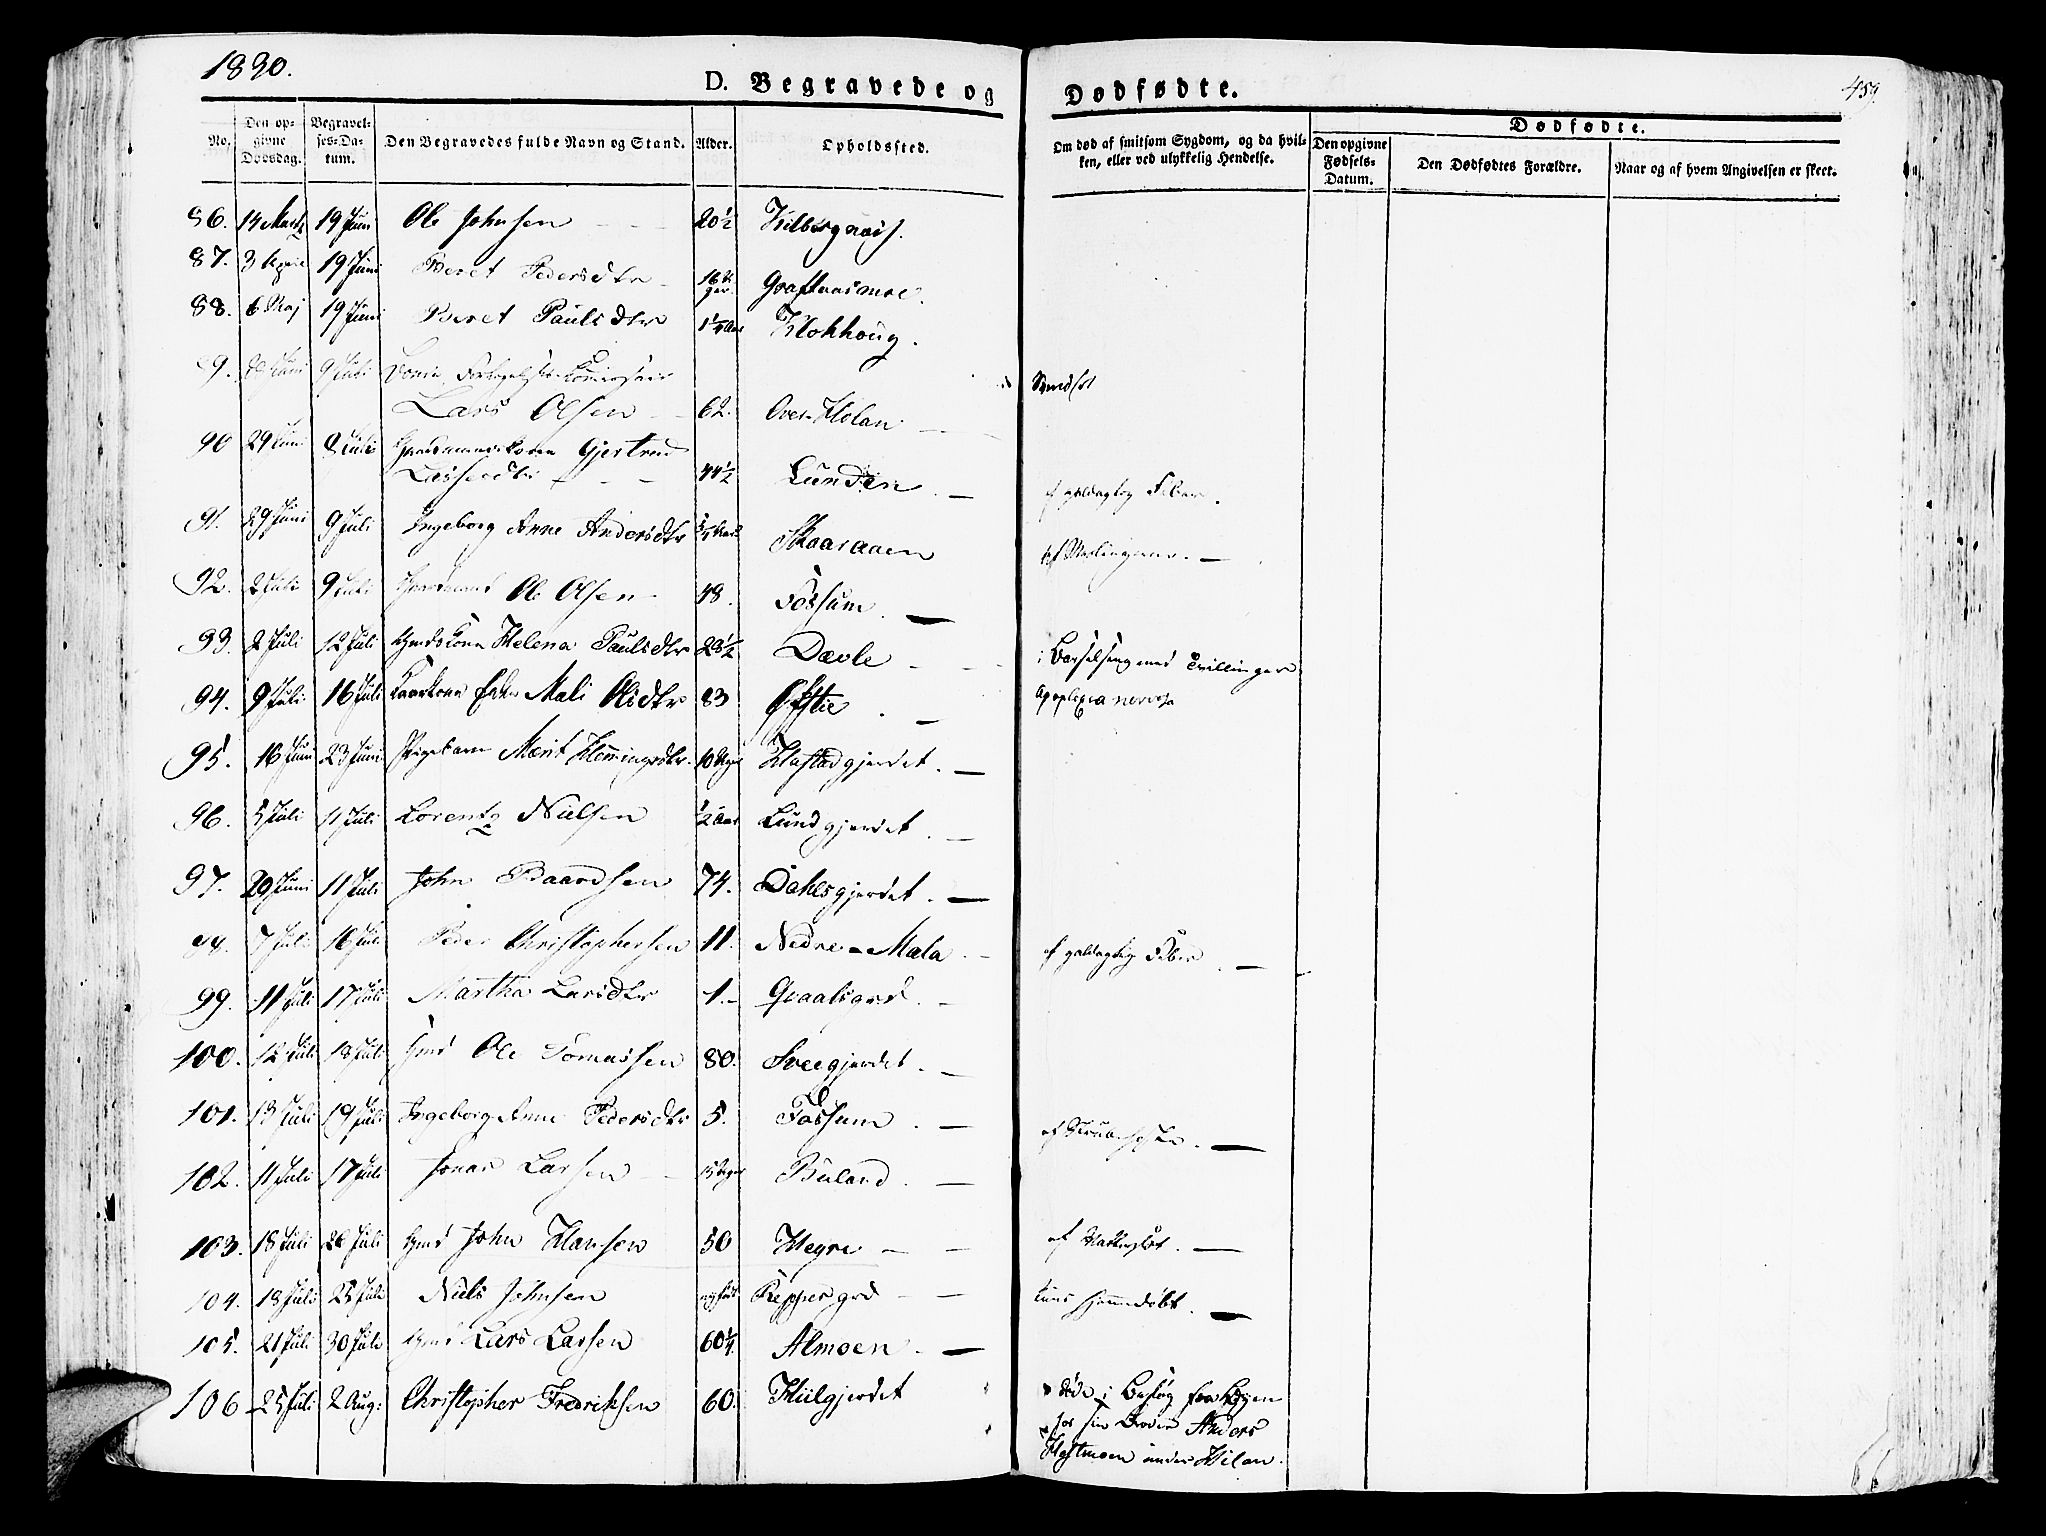 1830.
459.
D. Begravede og Dødfødte.
No.
Den opgivne Dødsdag.
Begravelses-Datum.
Den Begravedes fulde Navn og Stand.
Alder.
Opholdssted.
Om død af smitsom Sygdom, og da hvilken, eller ved ulykkelig Hendelse.
Dødfødte.
Den opgivne Fødsels-Datum.
Den Dødfødtes Forældre.
Naar og af hvem Angivelsen er skeet.
86. 14 Marts 19 Juni Ole Johnsen 20 1/2
87. 3 April 19 Juni Beret Pedersdtr 16 Graftaasmoe.
88. 6 Maj 19 Juni Beret Paulsdtr 1 1/4 Aar Klokhoug.
9. Juni 9 Juli
Lars Olsen 62. Over-Holan
90 29 Juni 8 Juli Gaardmandskone Gjertrud
Lassesdtr 44 1/2 Lunden. af galdagtig Feber.
91. 29 Juni 9 Juli Ingeborg Anne Andersdtr Skaaraaen af Meslingerne.
92. 2 Juli 9 Juli Gaardmand Ole Olsen 48. Fossum.
93. 2 Juli 12 Juli Gmdskone Helena Paulsdtr 28 1/2 Dævle i Barselseng med Tvillinger
94. 9 Juli 16 Juli Mali Olsdtr 83 Øfstie. Apoplexia nervosa
95. 16 Juni 23 Juni Pigebarn Marit Hemmingsdtr. 10 Uger Hastadgjerdet.
96. 5 Juli 11 Juli Lorentz Nielsen 1/2 Aar Lundgjerdet.
97. 29 Juni 11 Juli John Baardsen 74. Dahlsgjerdet.
98. 7 Juli 16 Juli Peder Christophersen 11. Nedre-Mæla. af galdagtig Feber.
99. 11 Juli 17 Juli Martha Larsdtr 1. Qvaalsgrd.
100. 12 Juli 18 Juli Gmd Ole Tomassen 80. Sveegjerdet.
101. 13 Juli 19 Juli Ingeborg Anne Pedersdtr 5. Fossum. af Strubehoste.
102. 11 Juli 17 Juli Jonas Larsen 15 Uger Buland.
103. 18 Juli 26 Juli Gmd John Hansen 50 Hegre
104. 18 Juli 25 Juli Niels Johnsen nyfødt Reppesgrd hjemmedøbt.
105. 21 Juli 30 Juli Gmd Lars Larsen 60 1/4. Almoen.
106 25 Juli 2 Aug: Christopher Fredriksen 60. Hiilgjerdet døde i Besøg fra Byen
hos sin Broder Anders
Hestmoen under Holan.